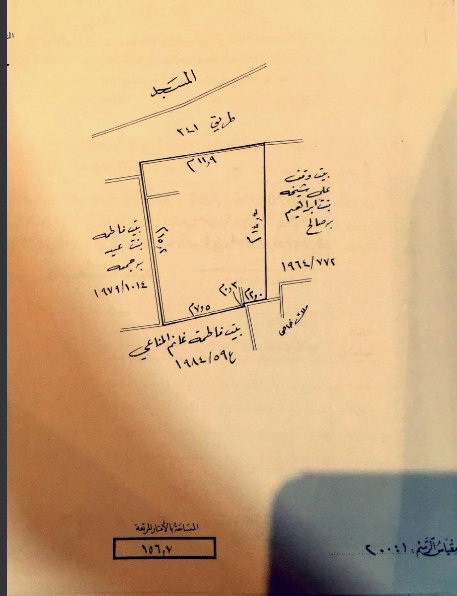 المسجد
طريق ٢٤١
١١٫٩م
بيت وقف
على شيخه
بنت ابراهيم
بر صالح
١٩٦٤/٧٧٢
بيت فاطمه
بنت عبيد
بر جمعه
١٩٧٩/١٠١٤
٧٫٥م
٠٫٣م
بيت فاطمة غانم المناعي
١٩٨٤/٥٩٤
المساحة بالأمتار المربعة
١٥٦٫٧
مقياس الرسم: ٢٠٠:١